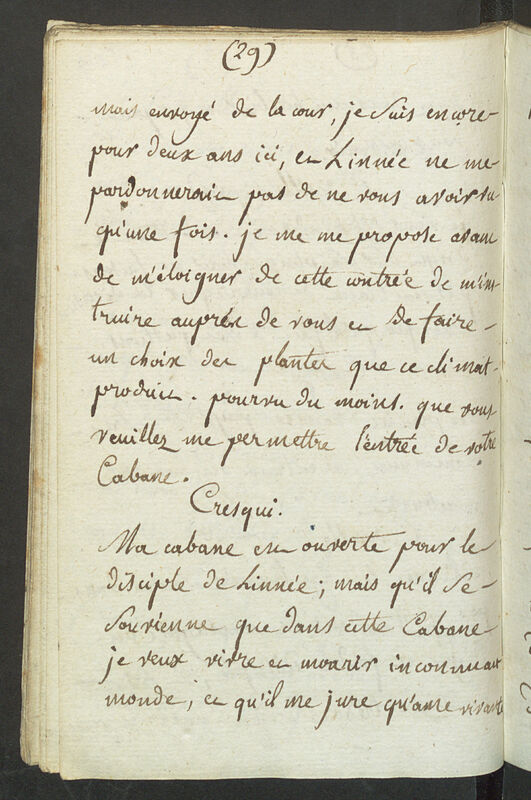 (29)
mais envoyé de la cour, je suis encore
pour deux ans ici, et Linnée ne me
pardonnerait pas de ne vous avoir vu
qu'une fois. je me me propose avant
de m'éloigner de cette contrée de m'ins
truire auprés de vous et de faire
un choix des plantes que ce climat
produit. pourvu du moins. que vous
veuillez me permettre l'entrée de votre
Cabane.
Cresqui.
Ma cabane est ouverte pour le
disciple de Linnée; mais qu'il se
souvienne que dans cette Cabane
je veux vivre et mourir inconnu au
monde, et qu'il me jure qu'ame vivante